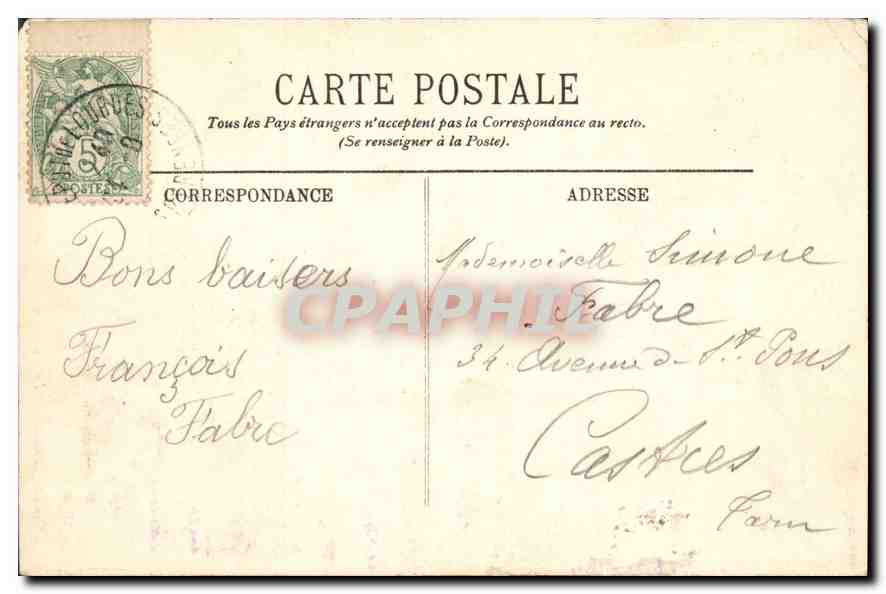 CARTE POSTALE
Tous les Pays étrangers n'acceptent pas la Correspondance au recto.
(Se renseigner à la Poste).
CORRESPONDANCE
ADRESSE
5
POSTES
LOURDES
Bons baisers
François
Fabre
Mademoiselle Simone
Fabre
34. Avenue de St Pons
Castres
Tarn
CPAPHIL